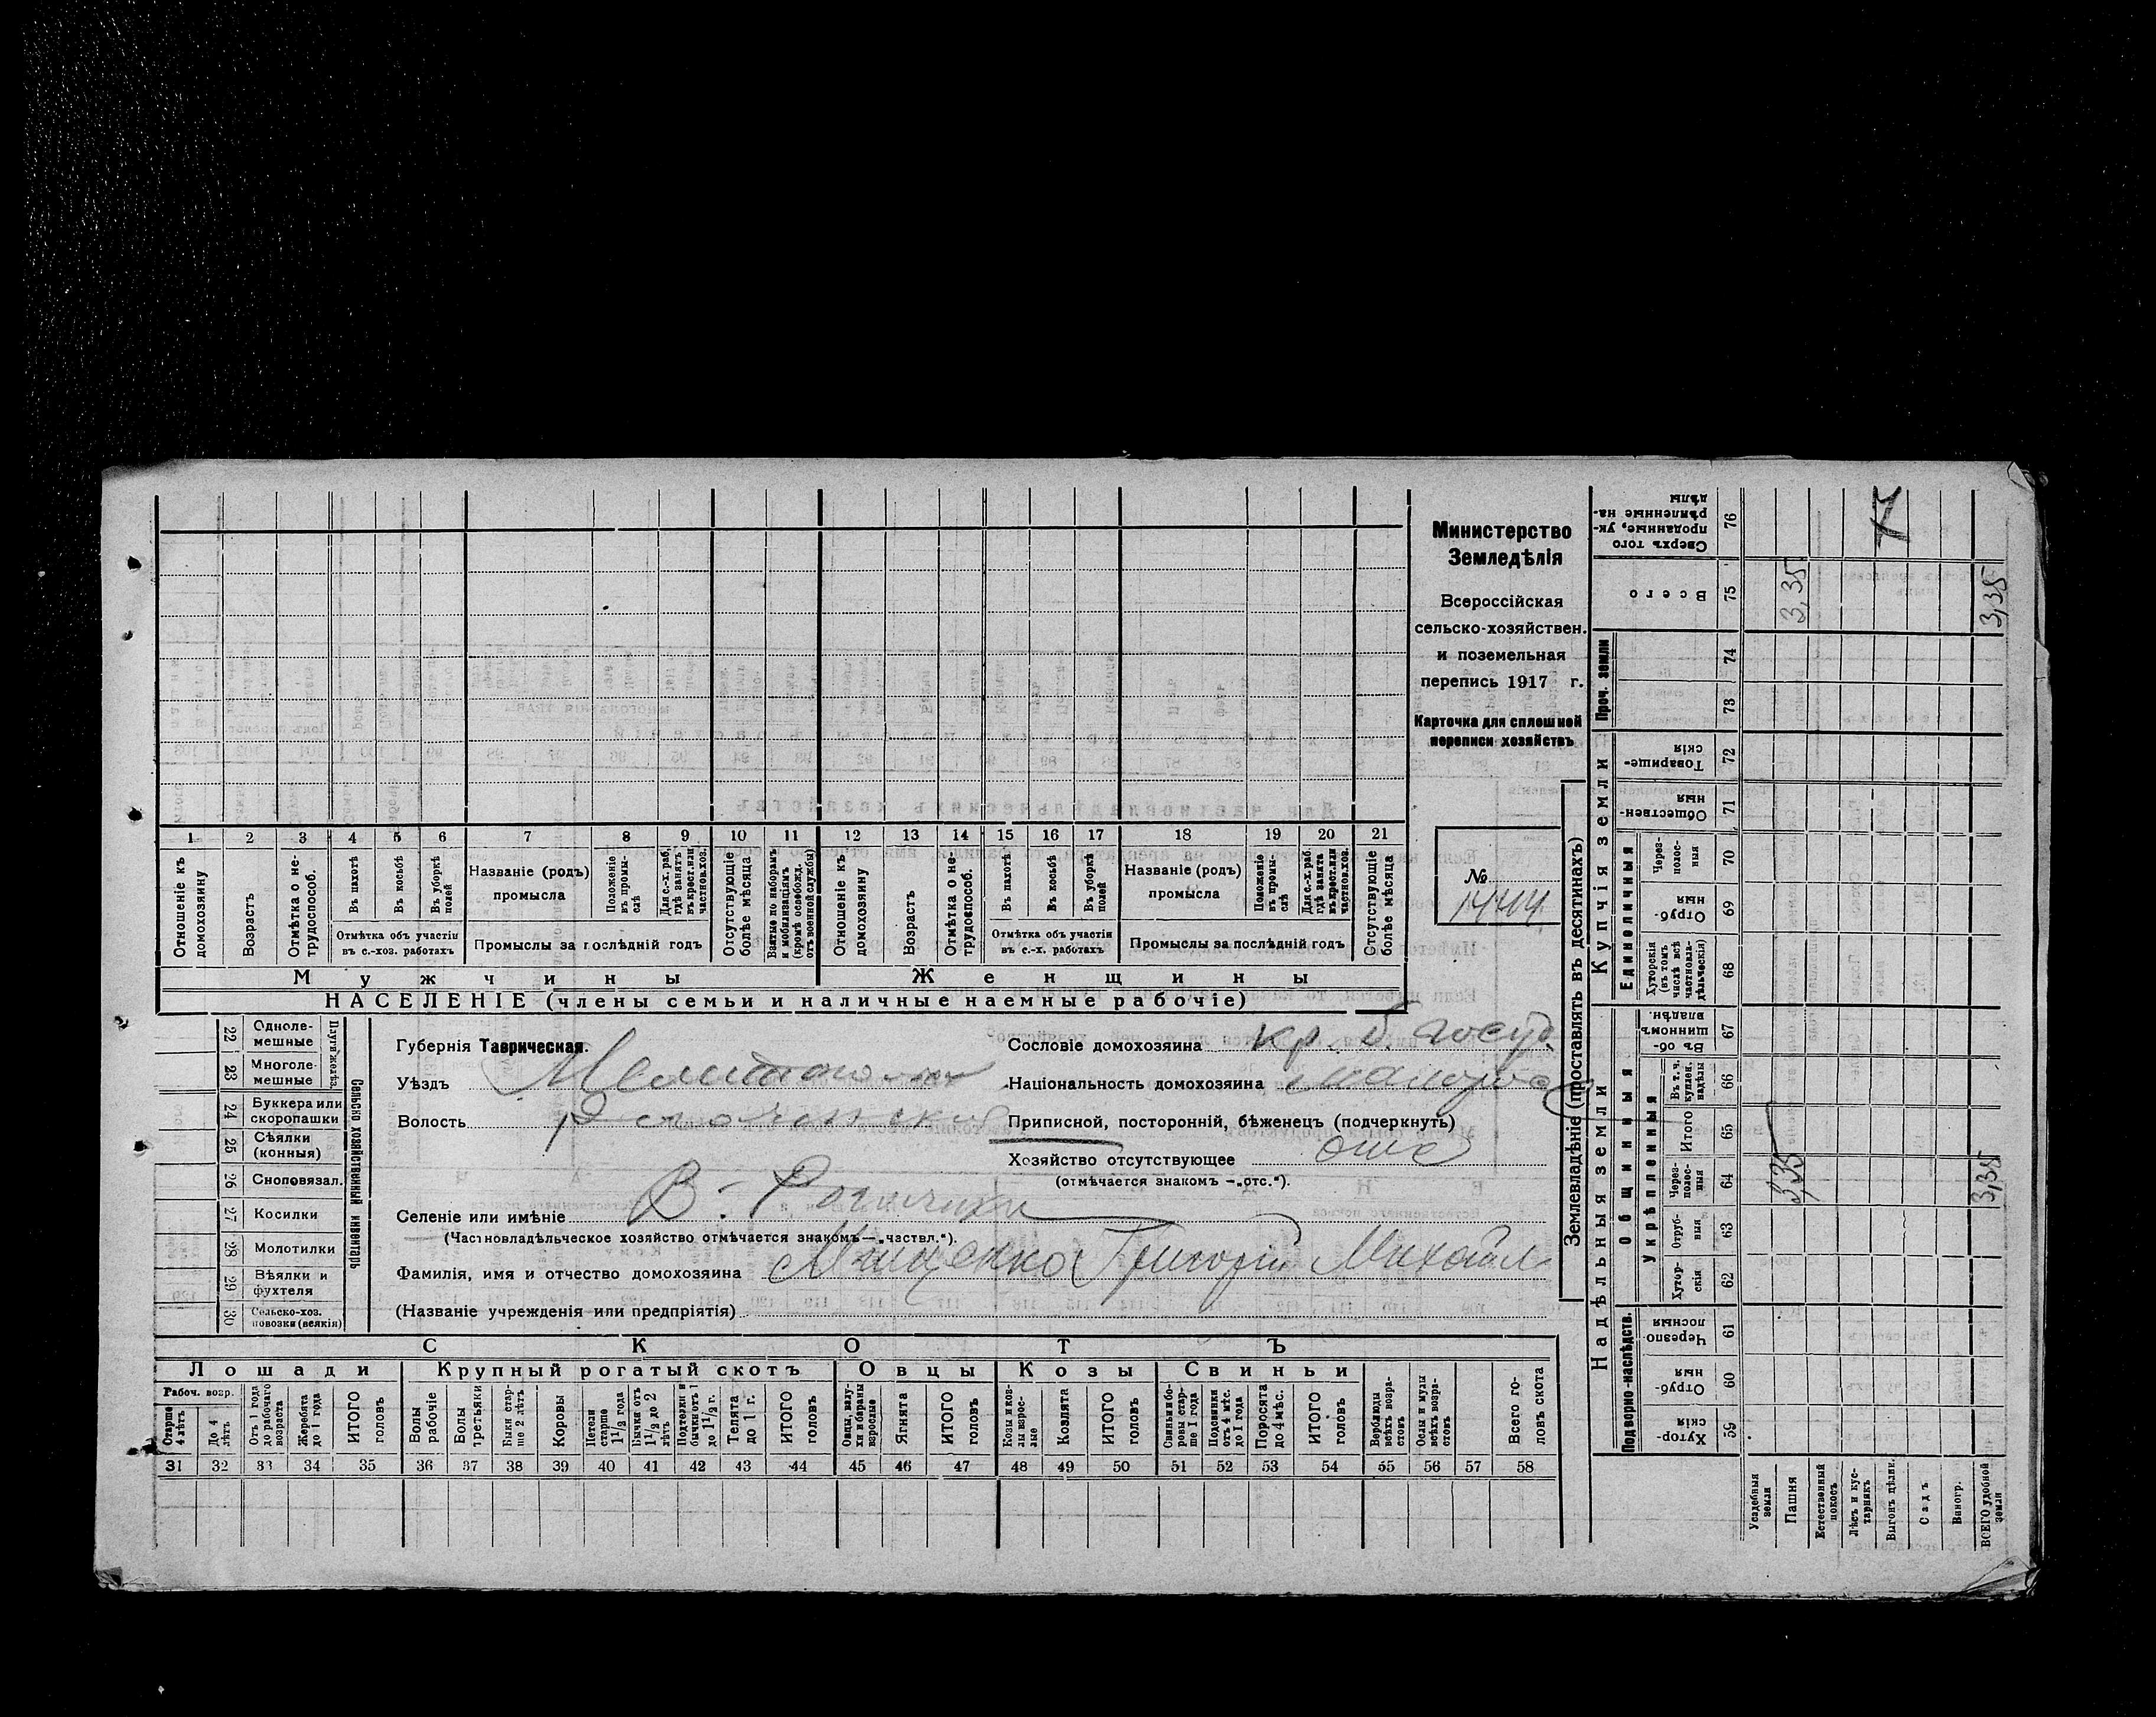 Министерство
Земледѣлія
Всероссійская
сельско-хозяйствен.
и поземельная
перепись 1917 г.
Карточка для сплошной
переписи хозяйствъ
№
1444
1 2 3 4 5 6 7 8 9 10 11 12 13 14 15 16 17 18 19 20 21
Отношеніе къ домохозяину
Возрастъ
Отмѣтка о не-трудоспособ.
Въ пахотѣ
Въ косьбѣ
Въ уборкѣ полей
Отмѣтка объ участіи въ с.-хоз. работахъ
Названіе (родъ) промысла
Положеніе въ промы-слѣ
Для с.-х. раб, гдѣ занятъ въ крест. или частнов. хоз.
Промыслы за послѣдній годъ
Отсутствующіе болѣе мѣсяца
Взятые по наборамъ и мобилизаціямъ (кромѣ освобожд. отъ военной службы)
Отношеніе къ домохозяину
Возрастъ
Отмѣтка о не-трудоспособ.
Въ пахотѣ
Въ косьбѣ
Въ уборкѣ полей
Отмѣтка объ участіи въ с.-х. работахъ
Названіе (родъ) промысла
Положеніе въ промы-слѣ
Для с.-х. раб. гдѣ занята въ крест. или частнов. хоз.
Промыслы за послѣдній годъ
Отсутствующіе болѣе мѣсяца
Мужчины Женщины
НАСЕЛЕНІЕ (члены семьи и наличные наемные рабочіе)
22 Одноле-мешные
23 Многоле-мешные
Плуги желѣз.
24 Буккера или скоропашки
25 Сѣялки (конныя)
26 Сноповязал.
27 Косилки
28 Молотилки
29 Вѣялки и фухтеля
30 Сельско-хоз. повозки (всякія)
Сельско хозяйственный инвентарь
Губернія Таврическая.
Уѣздъ Мелитополь
Волость Рогачинская
Селеніе или имѣніе В-Рогачики
(Частновладѣльческое хозяйство отмѣчается знакомъ — „частвл.“).
Фамилія, имя и отчество домохозяина Мищенко Григорій Михайл
(Названіе учрежденія или предпріятія)
Сословіе домохозяина кр. б. госуд.
Національность домохозяина малорос
Приписной, посторонній, бѣженецъ (подчеркнуть)
Хозяйство отсутствующее отс
(отмѣчается знакомъ — „отс.“).
СКОТЪ
Лошади Крупный рогатый скотъ Овцы Козы Свиньи
Рабоч. возр.
Старше 4 лѣтъ
До 4 лѣтъ
Отъ 1 года до рабочаго возраста
Жеребята до 1 года
ИТОГО головъ
Волы рабочіе
Волы третьяки
Быки стар-ше 2 лѣтъ
Коровы
Нетели старше 1½ года
Бычки отъ 1½ до 2 лѣтъ
Подтелки и бычки отъ 1 до 1½ г.
Телята до 1 г.
ИТОГО головъ
Овцы, валу-хи и бараны взрослые
Ягнята
ИТОГО головъ
Козы и коз-лы взрос-лые
Козлята
ИТОГО головъ
Свиньи и бо-ровы стар-ше 1 года
Подсвинки отъ 4 мѣс. до 1 года
Поросята до 4 мѣс.
ИТОГО головъ
Верблюды всѣхъ возра-стовъ
Ослы и мулы всѣхъ возра-стовъ
Всего го-ловъ скота
31 32 33 34 35 36 37 38 39 40 41 42 43 44 45 46 47 48 49 50 51 52 53 54 55 56 57 58
Землевладѣніе (проставлять въ десятинахъ)
Надѣльныя земли
Купчія земли
Проч. земли
Подворно-наслѣдств.
Общинныя
Укрѣпленныя
Единоличныя
Сверхъ того проданные, ук-рѣпленные на-дѣлы 76
Всего 75 3,35 3,35
74
73
Товарище-скія 72
Обществен-ныя 71
Через-полос-ныя 70
Отруб-ныя 69
Хуторскія (въ томъ числѣ всѣ частновла-дѣльческія) 68
Въ об-щинномъ владѣн. 67
Въ т. ч. куплен. надѣлы 66
Итого 65
Через-полос-ныя 64 3,35 3,35
Отруб-ныя 63
Хутор-скія 62
Черезпо лосныя 61
Отруб-ныя 60
Хутор-скія 59
Усадебныя земли
Пашня
Естественный покосъ
Лѣсъ и кус-тарникъ
Выгонъ цѣлин.
Садъ
Виногр.
ВСЕГО удобной земли